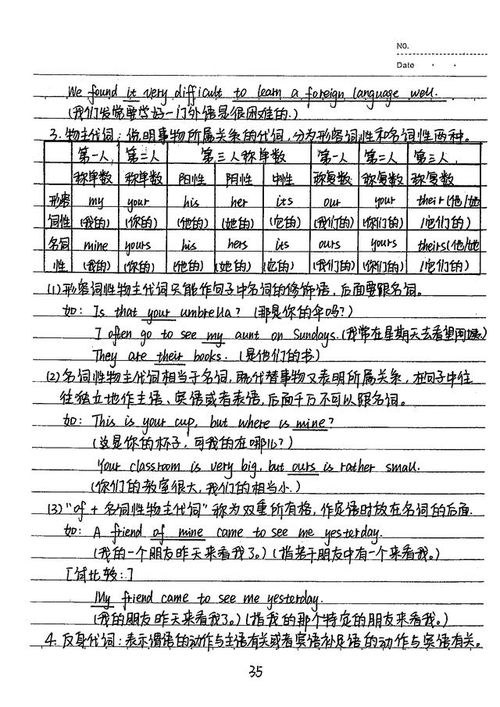 NO.
Date
We found it very difficult to learn a foreign language well.
(我们发觉要学好一门外语是很困难的.)
3. 物主代词: 说明事物所属关系的代词,分为形容词性和名词性两种.
第一人称单数 第二人称单数 第三人称单数 第一人称复数 第二人称复数 第三人称复数
阳性 阳性 中性
形容词性 my (我的) your (你的) his (他的) her (她的) its (它的) our (我们的) your (你们的) their (他/她/它们的)
名词性 mine (我的) yours (你的) his (他的) hers (她的) its (它的) ours (我们的) yours (你们的) theirs (他/她/它们的)
(1)形容词性物主代词只能作句子中名词的修饰语,后面要跟名词。
如: Is that your umbrella? (那是你的伞吗?)
I often go to see my aunt on Sundays. (我常在星期天去看望阿姨)
They are their books. (是他们的书)
(2)名词性物主代词相当于名词,既代替事物又表明所属关系,在句子中往
往独立地作主语、宾语或者表语,后面千万不可以跟名词。
如: This is your cup, but where is mine?
(这是你的杯子,可我的在哪儿?)
Your classroom is very big, but ours is rather small.
(你们的教室很大,我们的相当小.)
(3)"of + 名词性物主代词"称为双重所有格,作定语时放在名词的后面.
如: A friend of mine came to see me yesterday.
(我的一个朋友昨天来看我了。)(指若干朋友中有一个来看我。)
[试比较:]
My friend came to see me yesterday.
(我的朋友昨天来看我了。)(指我的那个特定的朋友来看我。)
4. 反身代词: 表示谓语的动作与主语有关或者宾语补足语的动作与宾语有关。
35